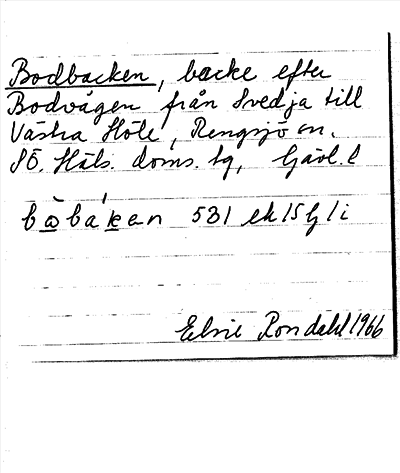 Bodbacken, backe efter
Bodvägen från Svedja till
Västra Höle, Rengsjö sn.
SÖ. Häls. doms. tg, Gävl. l
bòbáken 531
Elsie Rondahl 1966